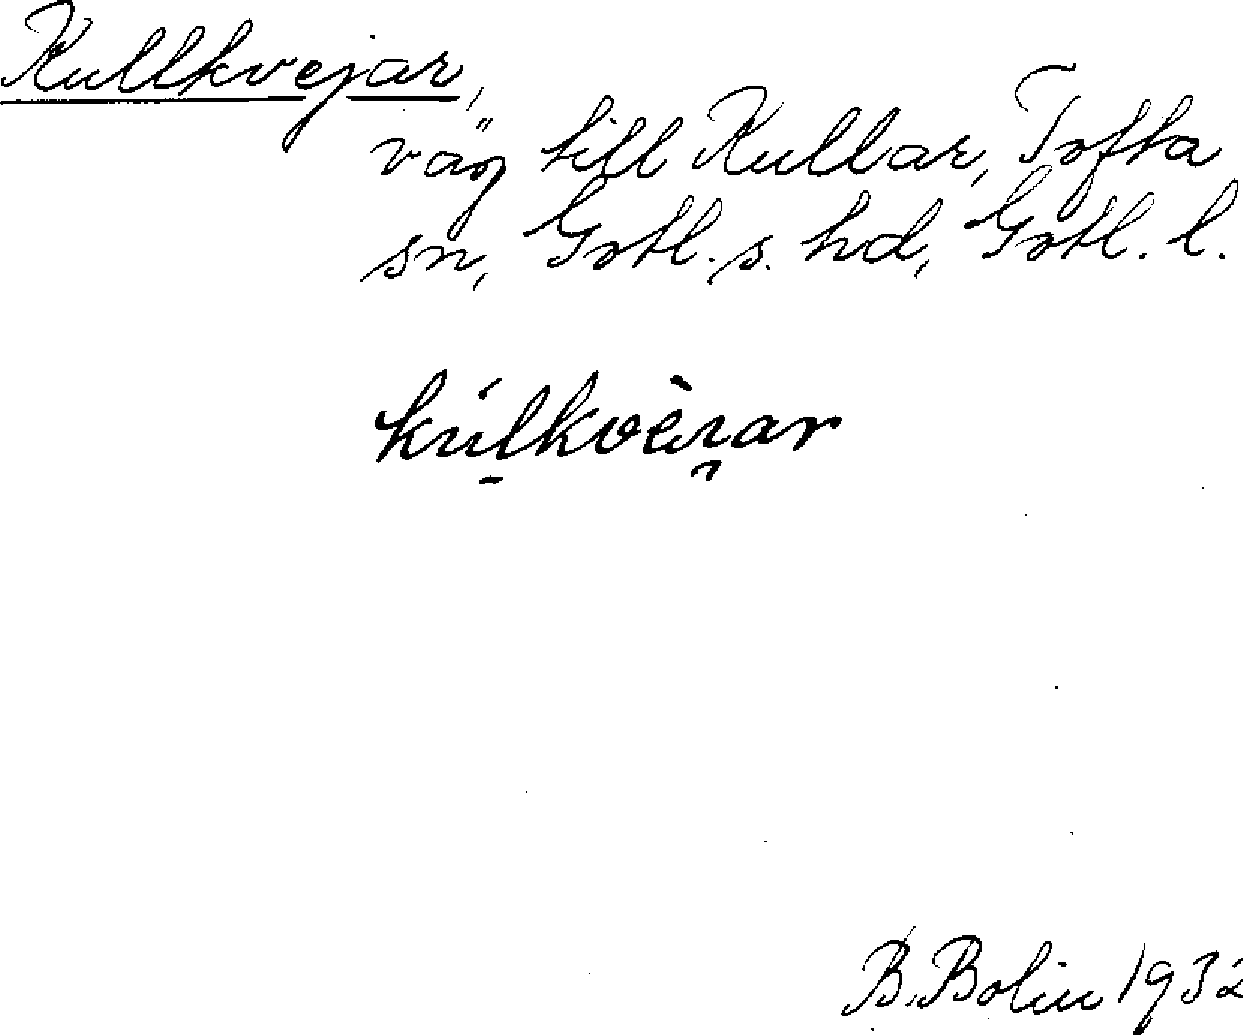 Kullkvejar,
väg till Kullar, Tofta
sn, Gotl. s. hd, Gotl. l.
B. Bolin 1932